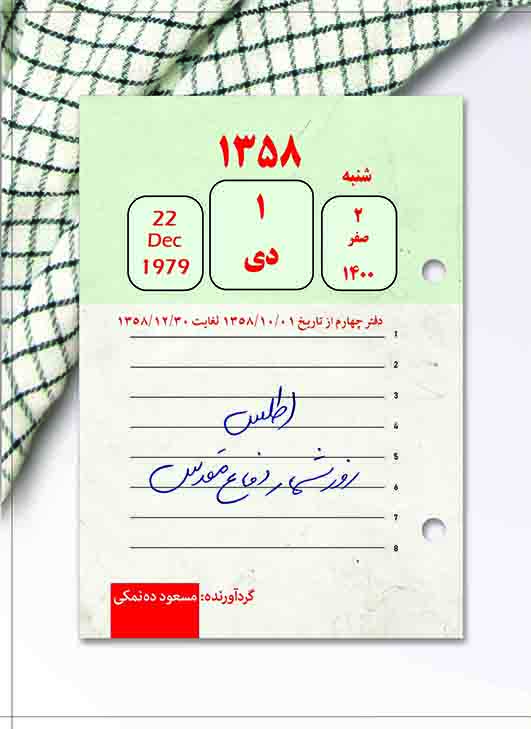 ۱۳۵۸
شنبه
۲
صفر
۱۴۰۰
۱
دی
22
Dec
1979
دفتر چهارم از تاریخ ۱۳۵۸/۱۰/۰۱ لغایت ۱۳۵۸/۱۲/۳۰
1
2
3
اطلس
4
5
روزشمار دفاع مقدس
6
7
8
گردآورنده: مسعود ده‌نمکی